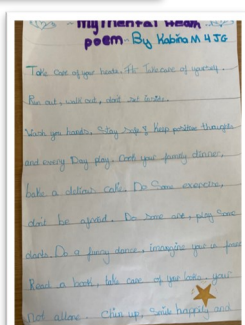 My Mental Health
poem - By Kabina M 4JG
Take care of your heart. Take care of yourself.
Run out, walk out, don't sit inside.
Wash you hands, Stay safe & Keep positive thoughts
and every Day play, Cook your family dinner,
bake a delious cake. Do Some exercise,
dont be afraid. Do some art, play some
darts. Do a funny dance, your in
Read a book, take care of you looks, your
Not allone. Chin up, Smile happily and